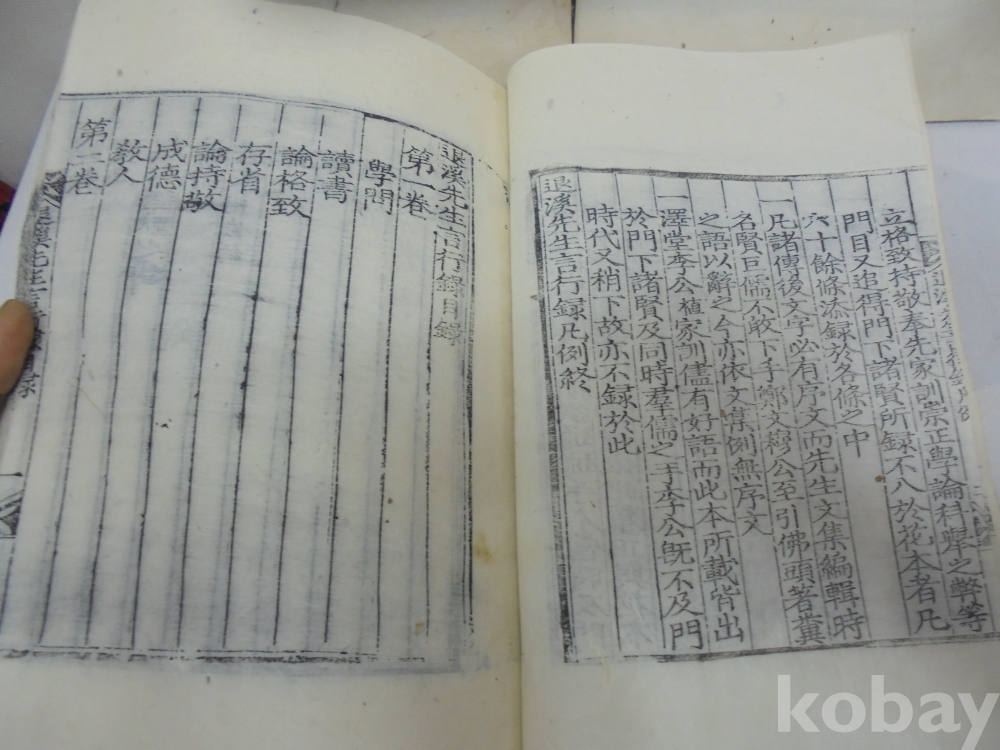 立格致持敬奉先家訓崇正學論科擧之弊等
門目又追得門下諸賢所錄不入於花本者凡
六十餘條添錄於各條之中
一凡諸傳後文字必有序文而先生文集編輯時
名賢巨儒不敢下手鄭文穆公至引佛頭著糞
之語以辭之今亦依文集例無序文
一澤堂李公植家訓儘有好語而此本所載皆出
於門下諸賢及同時羣儒之手李公旣不及門
時代又稍下故亦不録於此
退溪先生言行録凡例終
退溪先生言行録目錄
第一卷
學問
讀書
論格致
存省
論持敬
成德
敎人
第二卷
kobay